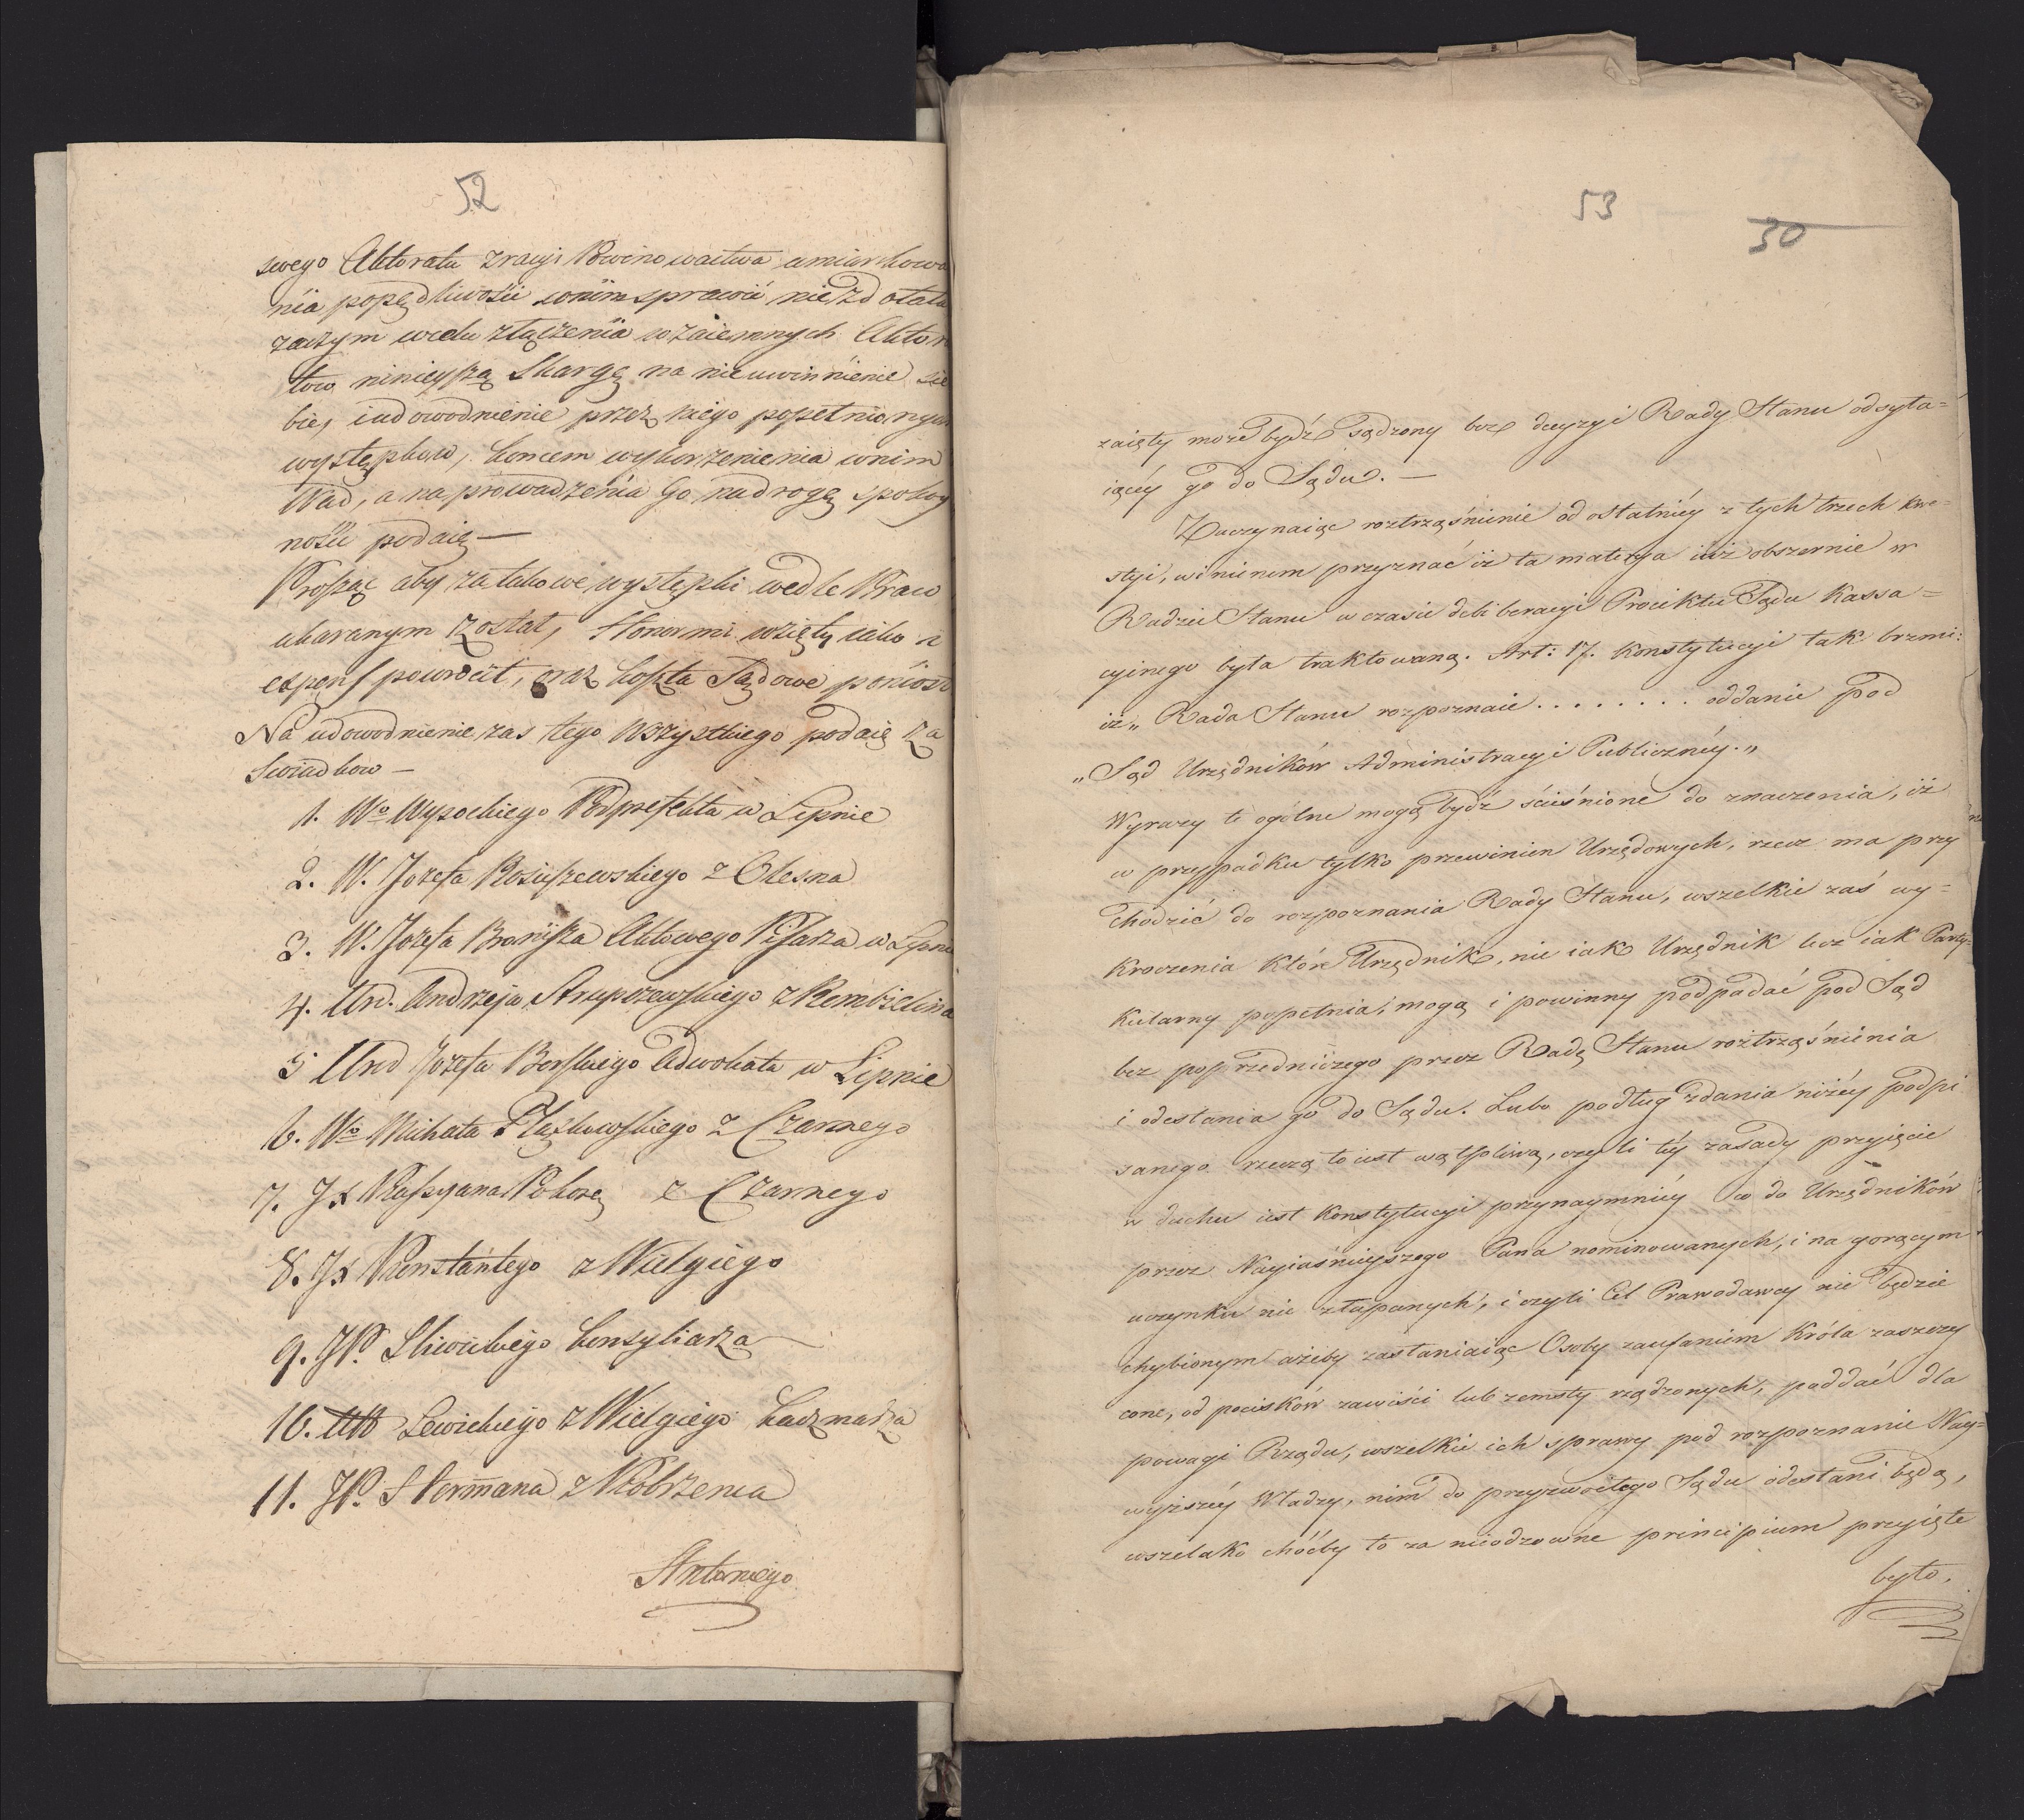 52
swego Aktorata z racyi Powinowactwa umiarkowa
nia popędliwości wnim sprawić nie zdołała
zaczym wcelu złączenia wzaiemnych Akto
tow ninieyszą Skargę na nieuwinnienie sie
bie, iudowodnienie przez niego popełnionych
występkow, koncem wykorzenienia wnim
Wad, a naprowadzenia Go nadrogę spokoy
nośći podaię —
Prosząc aby za takowe występki wedle Praw
ukaranym został, Honor mi wzięty iako i
expens powrócił, oraz koszta Sądowe poniosł
Na udowodnienie zas tego wszystkiego podaię za
Swiadkow —
1. Wo Wysockiego Podprefekta w Lipnie
2. W. Jozefa Rosciszewskiego z Olesna
3. W. Jozefa Bronisza Aktowego Pisarza w Lipnie
4. Urd. Andrzeja Strupczewskiego z Rembielina
5 Urd Jozefa Borskiego Adwokata w Lipnie
6. Wo Michała Płączkowskiego z Czarnego
7. JX Kassyana z Czarnego
8. JX Konstantego z Wielgiego
9. JP. Sliwickiego Konsyliarza
10. Lewickiego z Wielgiego Karzmarza
11. JP. Hermana z Kobrzenca
Antoniego
53
30
zaięty może bydź sądzony bez decyzyi Rady Stanu odsyła=
iącéy go do Sądu. —
Zaczynaiąc roztrząśnienie od ostatniéy z tych trzech kwe=
styi, winienem przyznać iż ta materya iuż obszernie w
Radzie Stanu w czasie deliberacyi Proiektu Sądu Kassa=
cyinego była traktowaną. Art: 17. Konstytucyi tak brzmi:
iż „ Rada Stanu rozpoznaie . . . . . . . . oddanie pod
„ Sąd Urzędników Administracyi Publicznéy. „
Wyrazy te ogólne mogą bydź ściśnione do znaczenia, iż
w przypadku tylko przewinien Urzędowych, rzecz ma przy
chodzić do rozpoznania Rady Stanu, wszelkie zaś wy=
kroczenia które Urzędnik, nie iak Urzędnik lecz iak Party=
kularny popełnia, mogą i powinny podpadać pod Sąd
bez poprzedniczego przez Radę Stanu roztrząśnienia
i odesłania go do Sądu. Lubo podług zdania niżéy podpi
sanego rzeczą to iest wątpliwą, czyli téy zasady przyięcie
w duchu iest Konstytucyi przynaymniéy co do Urzędników
przez Nayiaśnieyszego Pana nominowanych, i na gorącym
uczynku nie złapanych, i czyli Cel Prawodawcy nie będzie
chybionym ażeby zasłaniaiąc Osoby zaufaniem Króla zaszczy
cone, od pocisków zawiści lub zemsty rządzonych, poddać dla
powagi Rządu, wszelkie ich sprawy pod rozpoznanie Nay=
wyższéy Władzy, nim do przyzwoitego Sądu odesłani będą,
wszelako choćby to za nieodzowne principium przyięte
było,